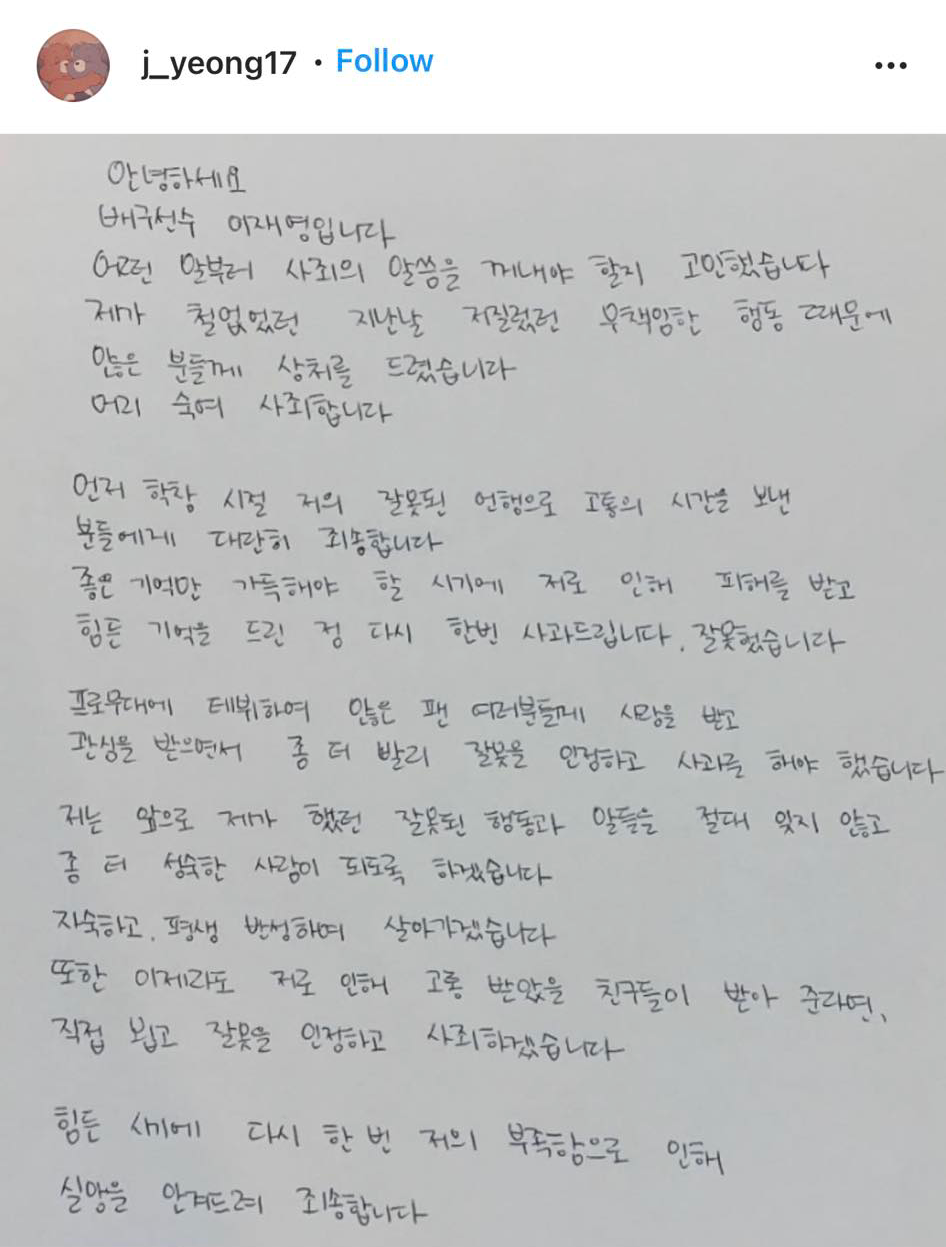 j_yeong17 • Follow
안녕하세요
배구선수 이재영입니다
어떤 말부터 사죄의 말씀을 꺼내야 할지 고민했습니다
제가 철없었던 지난날 저질렀던 무책임한 행동 때문에
많은 분들께 상처를 드렸습니다
머리 숙여 사죄합니다
먼저 학창 시절 저의 잘못된 언행으로 고통의 시간을 보낸
분들에게 대단히 죄송합니다
좋은 기억만 가득해야 할 시기에 저로 인해 피해를 받고
힘든 기억을 드린 점 다시 한번 사과드립니다, 잘못했습니다
프로무대에 데뷔하여 많은 팬 여러분들께 사랑을 받고
관심을 받으면서 좀 더 빨리 잘못을 인정하고 사과를 해야 했습니다
저는 앞으로 제가 했던 잘못된 행동과 말들을 절대 잊지 않고
좀 더 성숙한 사람이 되도록 하겠습니다
자숙하고, 평생 반성하며 살아가겠습니다
또한 이제라도 저로 인해 고통 받았을 친구들이 받아 준다면,
직접 뵙고 잘못을 인정하고 사죄하겠습니다
힘든 시기에 다시 한 번 저의 부족함으로 인해
실망을 안겨드려 죄송합니다